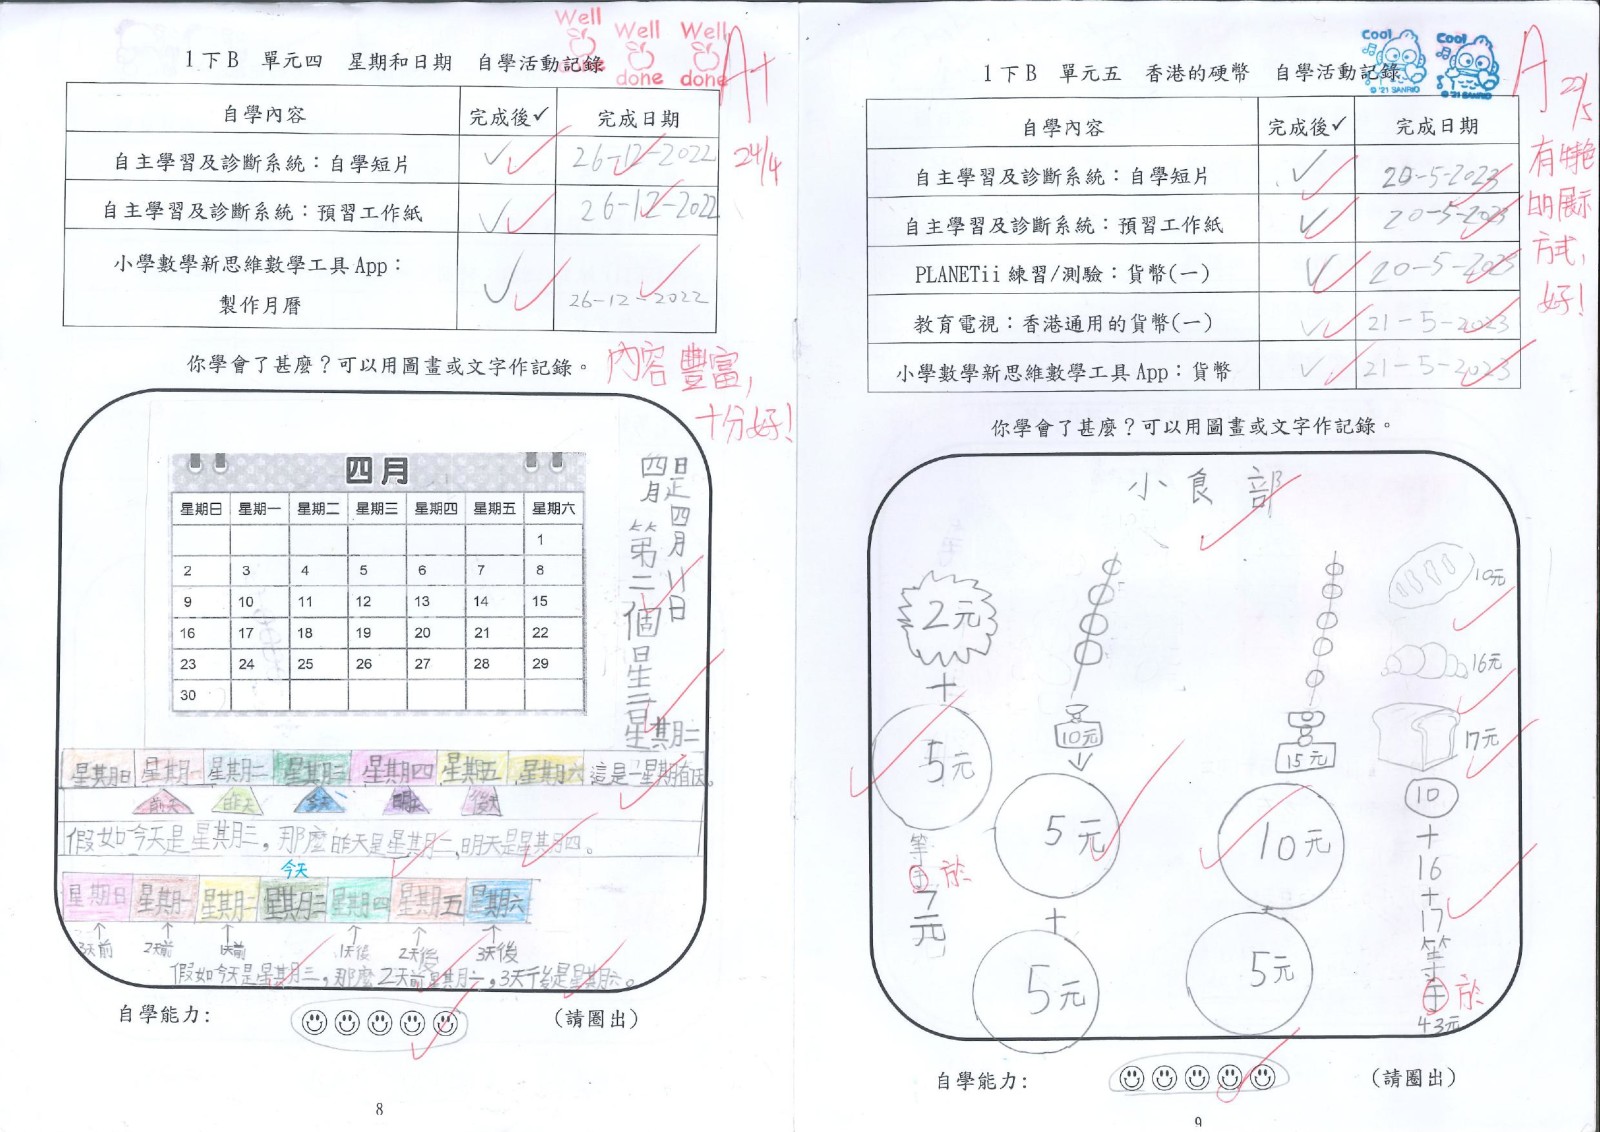 Well done
Well done
Well done
A+
24/4
1下B 單元四 星期和日期 自學活動記錄
自學內容 完成後✓ 完成日期
自主學習及診斷系統：自學短片 ✓ 26-12-2022
自主學習及診斷系統：預習工作紙 ✓ 26-12-2022
小學數學新思維數學工具App：
製作月曆 ✓ 26-12-2022
你學會了甚麼？可以用圖畫或文字作記錄。
內容豐富，
十分好！
四月
星期日 星期一 星期二 星期三 星期四 星期五 星期六
1
2 3 4 5 6 7 8
9 10 11 12 13 14 15
16 17 18 19 20 21 22
23 24 25 26 27 28 29
30
四月第二個星期二
是四月11日
星期日 星期一 星期二 星期三 星期四 星期五 星期六 這是一星期有
前天 昨天 今天 明天 後天
假如今天是星期三，那麼昨天是星期二，明天是星期四。
今天
星期日 星期一 星期二 星期三 星期四 星期五 星期六
3天前 2天前 1天前 1天後 2天後 3天後
假如今天是星期三，那麼2天前是星期，3天後是星期六。
自學能力： （請圈出）
8
Cool
© '21 SANRIO
Cool
© '21 SANRIO
A 22/5
有特色
的展示
方式，
好！
1下B 單元五 香港的硬幣 自學活動記錄
自學內容 完成後✓ 完成日期
自主學習及診斷系統：自學短片 ✓ 20-5-2023
自主學習及診斷系統：預習工作紙 ✓ 20-5-2023
PLANETii 練習/測驗：貨幣(一) ✓ 20-5-2023
教育電視：香港通用的貨幣(一) ✓ 21-5-2023
小學數學新思維數學工具App：貨幣 ✓ 21-5-2023
你學會了甚麼？可以用圖畫或文字作記錄。
小食部
2元
+
5元
等於
7元
10元
5元
+
5元
15元
10元
5元
10元
16元
17元
10
+
16
+
17
等於
43元
自學能力： （請圈出）
9